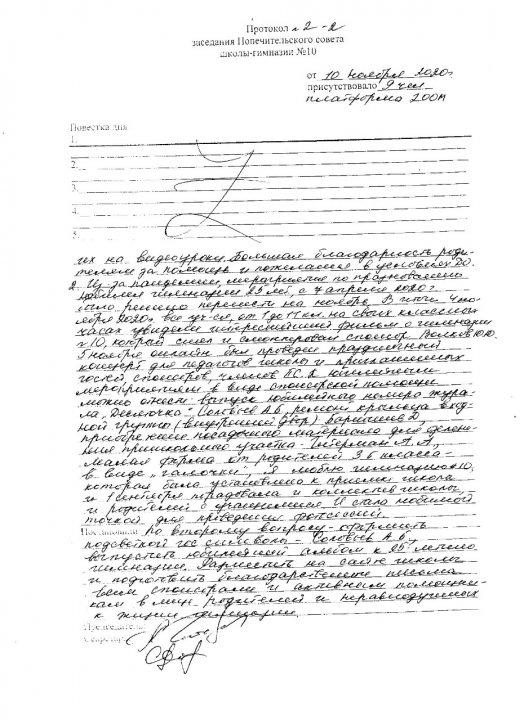 Протокол № 2-2
заседания Попечительского совета
школы-гимназии №10
от 10 ноября 2020г
присутствовало 9 чел
платформа ZOOM
Повестка дня
1.
2.
3.
4.
5.
их на видеоуроки. Большая благодарность роди-
телям за помощь и пожелания в условиях ДО.
2. Из-за пандемии, мероприятие по празднованию
юбилея гимназии 25 лет, с 7 апреля 2020г
было решено перенести на ноябрь. В итоге 4 но-
ября 2020г все уч-ся, от 1 до 11 кл. на своих классных
часах увидели интереснейший фильм о гимназии
№10, который снял и смонтировал спонсор Волков Ю.Ю.
5 ноября онлайн был проведен праздничный
концерт для педагогов школы и приглашенных
гостей, спонсоров, членов ПС. К юбилейным
мероприятиям в виде спонсорской помощи
можно отнести: выпуск юбилейного номера журна-
ла Соловьев А.В., ремонт крыльца вход-
ной группы (внутренний двор)
приобретение посадочного материала для озелене-
ния пришкольного участка - А.А.,
Малая форма от родителей 3 б класса -
в виде "галочки", "Я люблю гимназию №10,
которая была установлена к приемке школы
и 1 сентября порадовала и коллектив школы,
и родителей с учащимися. И стала любимой
точкой для проведения фотосессий.
Постановили: по второму вопросу - оформить
подсветкой - Соловьев А.В.,
выпустить юбилейный альбом к 25-летию
гимназии. Разместить на сайте школы
и подготовить благодарственные письма
всем спонсорам и активным помощни-
кам в лице родителей и неравнодушных
к жизни гимназии.
Председатель
Секретарь